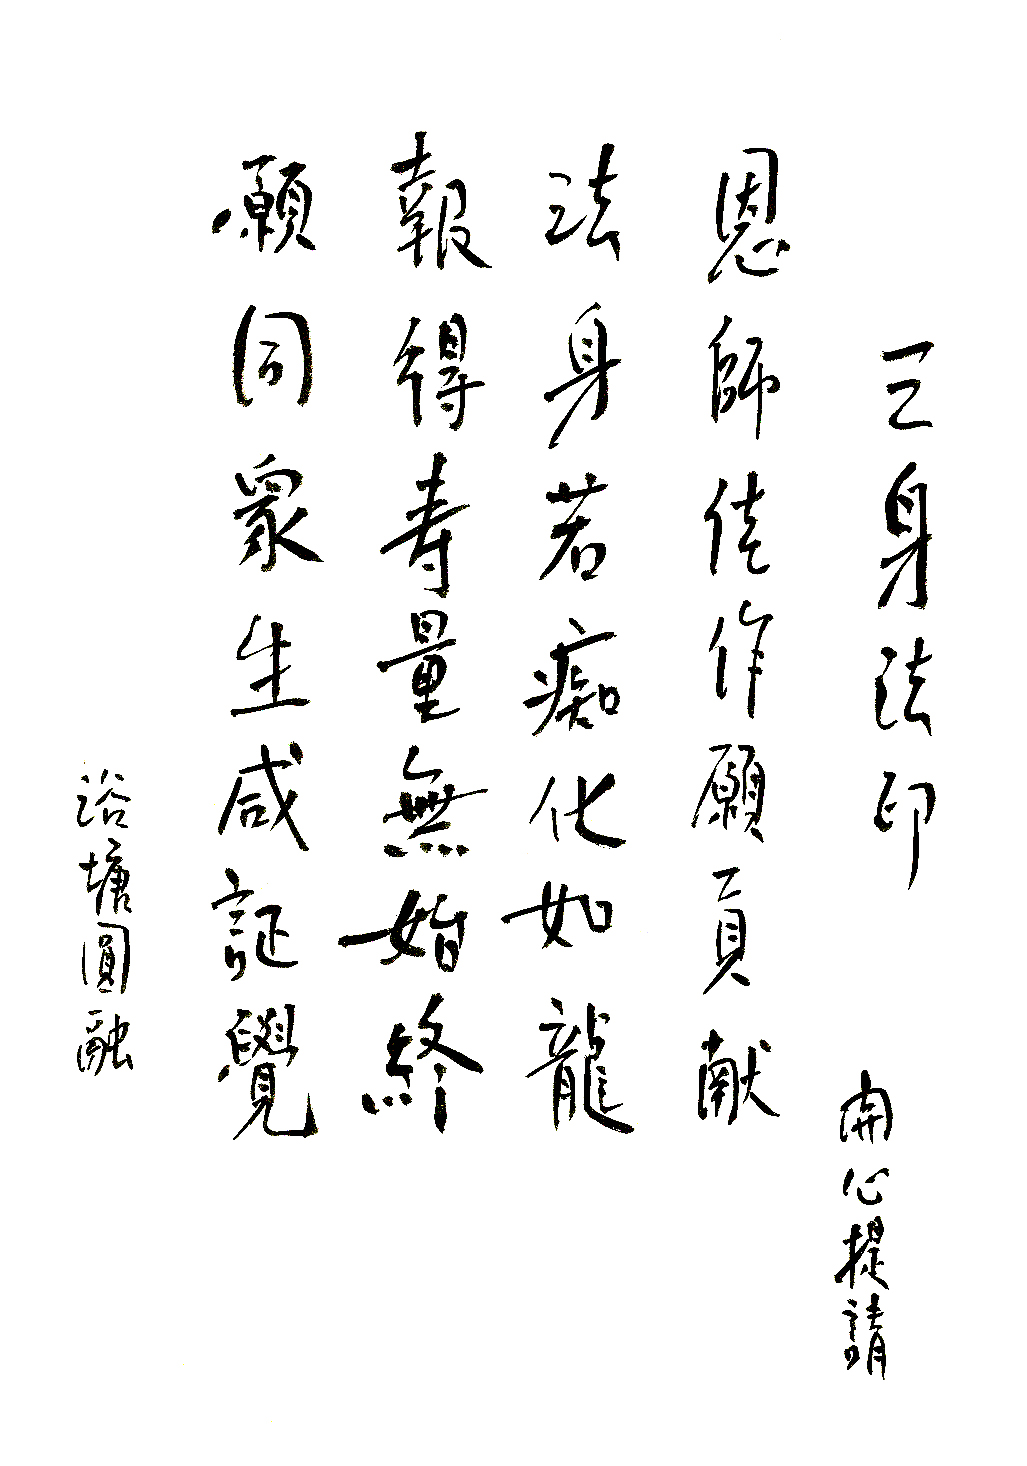 三身法印
開心提請
恩師佳作願貢献
法身若痴化如龍
報得壽量無始終
願同眾生咸証覺
浴塘圓融